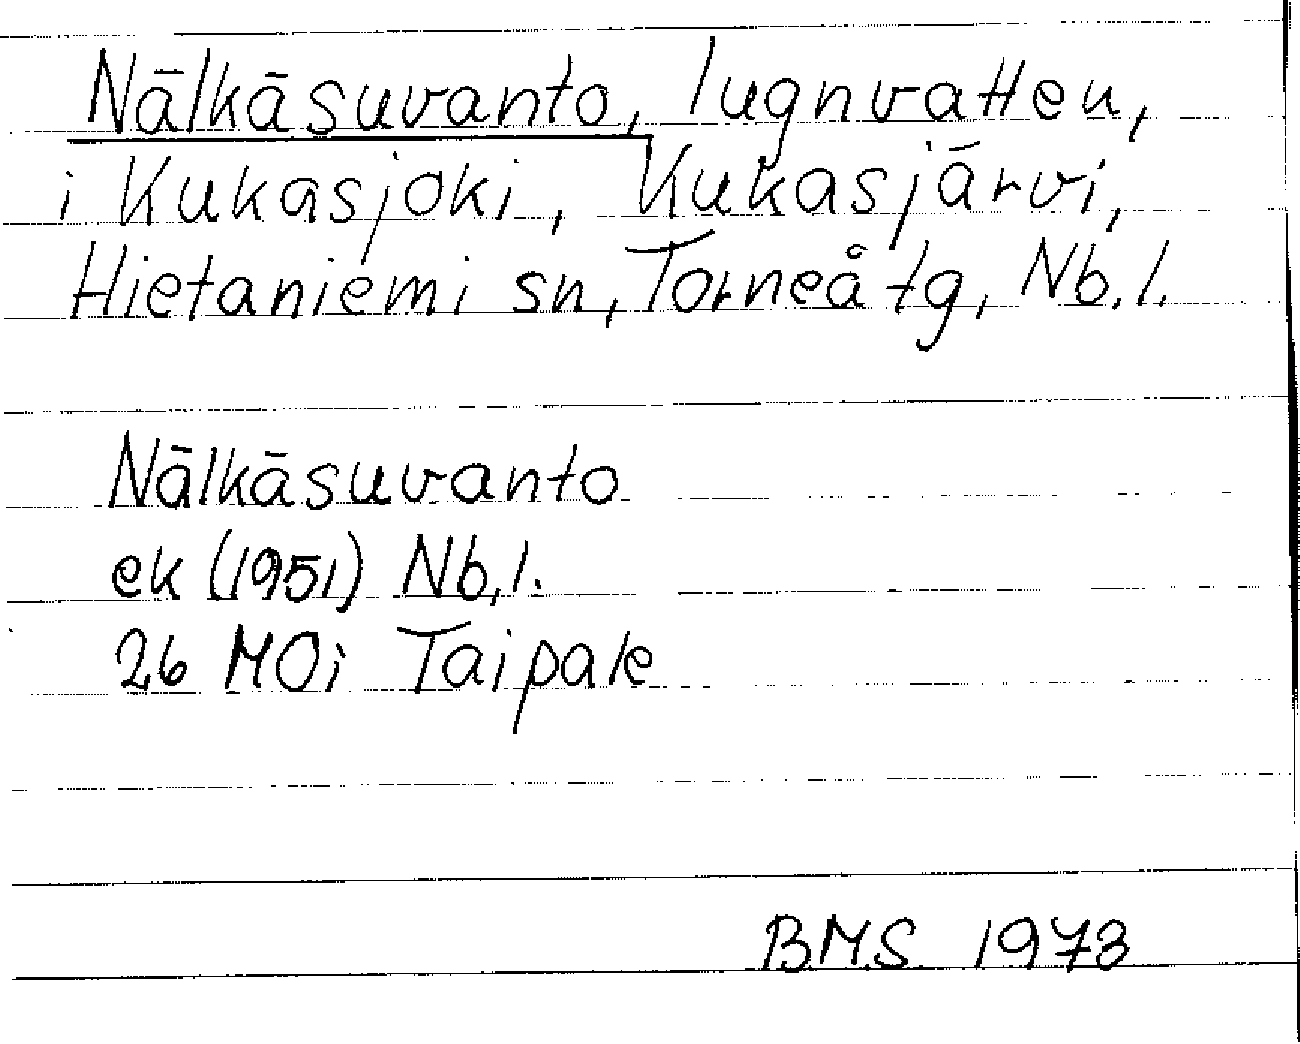 Nälkäsuvanto, lugnvatten,
i Kukasjoki, Kukasjärvi,
Hietaniemi sn, Torneå tg, Nb. l.
Nälkäsuvanto
ek (1951) Nb. l.
26 MOi Taipale
B.M.S. 1973